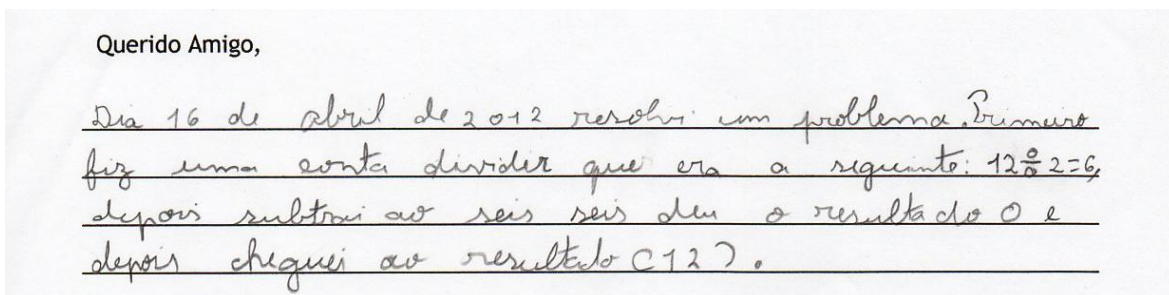 Querido Amigo,
Dia 16 de abril de 2012 resolvi um problema. Primeiro
fiz uma conta dividir que era a seguinte: 12÷2=6,
depois subtrai ao seis seis deu o resultado 0 e
depois cheguei ao resultado (12).